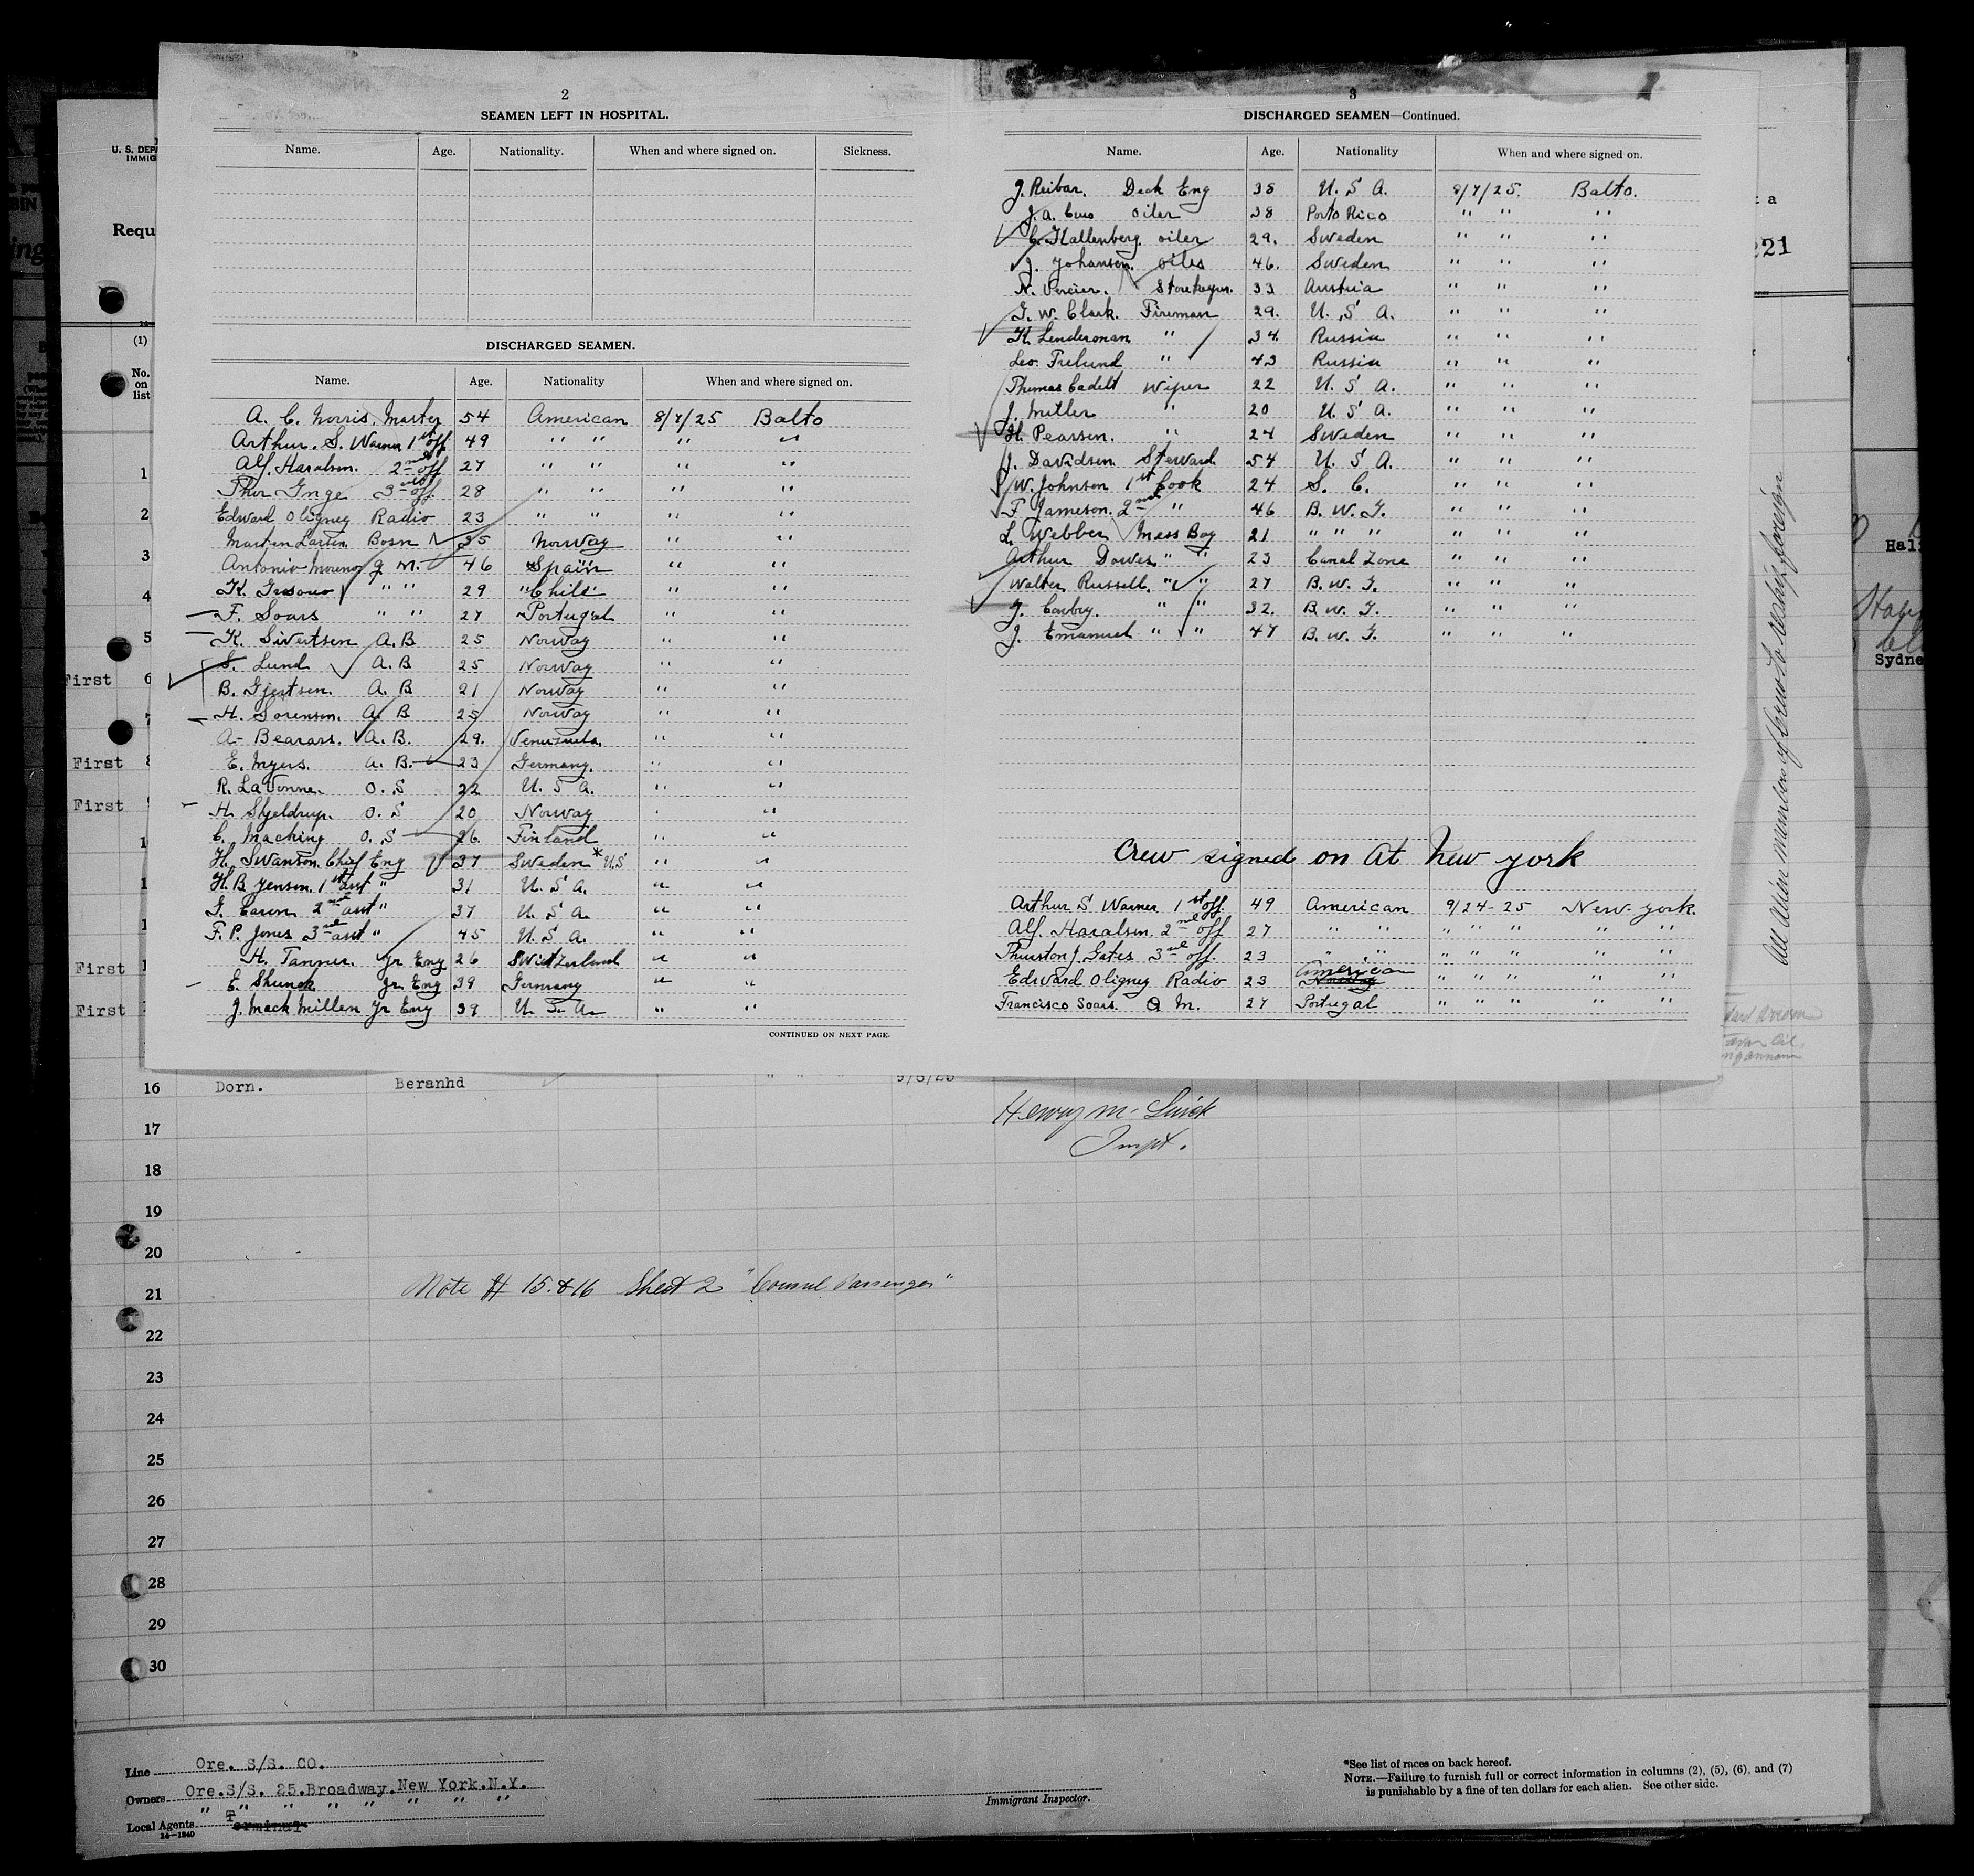 2
SEAMEN LEFT IN HOSPITAL.
Name. Age. Nationality. When and where signed on. Sickness.
DISCHARGED SEAMEN.
Name. Age. Nationality When and where signed on.
A. C. Norris. Master 54 American 8/7/25 Balto
Arthur. S. Warner 1st off 49 " " " "
Alf. Haralsen. 2nd off 27 " " " "
Thor Inge 3rd off. 28 " " " "
Edward Oligney Radio 23 " " " "
Marten Larsen Bosn 35 Norway " "
Antonio Moreno q M. 46 Spain " "
K. " " 29 "Chile " "
F. Soars " " 27 Portugal " "
K. Sivertsen A.B 25 Norway " "
S. Lund A.B 25 Norway " "
B. Gjertsen. A. B 21 Norway " "
H. Sorensen. A. B 25 Norway " "
A- Bearars. A. B. 29. Venuzuela. " "
E. Myers. A. B. 23 Germany. " "
R. LaVonne. O. S 22 U. S A. " "
H. Skjeldrup. O. S 20 Norway " "
C. Maching O. S 26. Finland " "
H. Swanson. Chief Eng 37 Sweden * U.S " "
H. B. Jensen. 1st asst " 31 U. S A. " "
2nd asst " 37 U. S A. " "
F. P. Jones 3rd asst " 45 U. S A. " "
H. Tanner. Jr Eng 26 Switzerland " "
E. Shunck Jr. Eng 39 Germany " "
J. Mack Millen Jr Eng 39 U. S. A. " "
CONTINUED ON NEXT PAGE.
3
DISCHARGED SEAMEN—Continued.
Name. Age. Nationality When and where signed on.
J. Reibar. Deck Eng 38 U. S A. 8/7/25. Balto.
J. A. oiler 38 Porto Rico " " "
C. Hallenberg. oiler 29. Sweden " " "
J. Johansen. oiles 46. Sweden " " "
N. 33 Austria " " "
G. W. Clark. Fireman 29. U. S A. " " "
K. Lenderoman " 34. Russia " " "
Leo. Frelund " 43 Russia " " "
Thomas Cadell Wiper 22 U. S A. " " "
J. Mitler " 20 U. S A. " " "
H. Pearsen. " 24 Sweden " " "
J. Davidsen. Steward 54 U. S A. " " "
W. Johnson 1st Cook 24 S. C. " " "
F Jameson. 2nd " 46 B. W. I. " " "
L. Webber Mess Boy 21 " " " " " "
Arthur Dowes " " 23 Canal Zone " " "
Walter Russell. " " 27 B. W. I. " " "
J. " " 32. B. W. I. " " "
J. Emanuel " " 47 B. W. I. " " "
Crew signed on at New york
Arthur S Warner 1st off. 49 American 9/24-25 New. york.
Alf. Haralsen. 2nd off 27 " " " " " " "
Thurston J. Gates 3rd off. 23 " " " " " " "
Edward Oligney Radio 23 American " " " " "
Francisco Soars. Q M. 27 Portugal " " " " "
All Alien members of Crew to reship foreign
U. S. DEP
IMMIG
Requ
(1)
No.
on
list
1
2
3
4
5
First 6
7
First 8
First
First
First
221
Sydne
16 Dorn. Beranhd
17
18
19
20
21
22
23
24
25
26
27
28
29
30
Note # 15. & 16 Sheet 2 "Consul Passenger"
Line Ore. S/S. CO.
Owners Ore.S/S. 25.Broadway.New York.N.Y.
Local Agents " " " " " " " "
14—1240
Immigrant Inspector.
*See list of races on back hereof.
NOTE.—Failure to furnish full or correct information in columns (2), (5), (6), and (7)
is punishable by a fine of ten dollars for each alien. See other side.